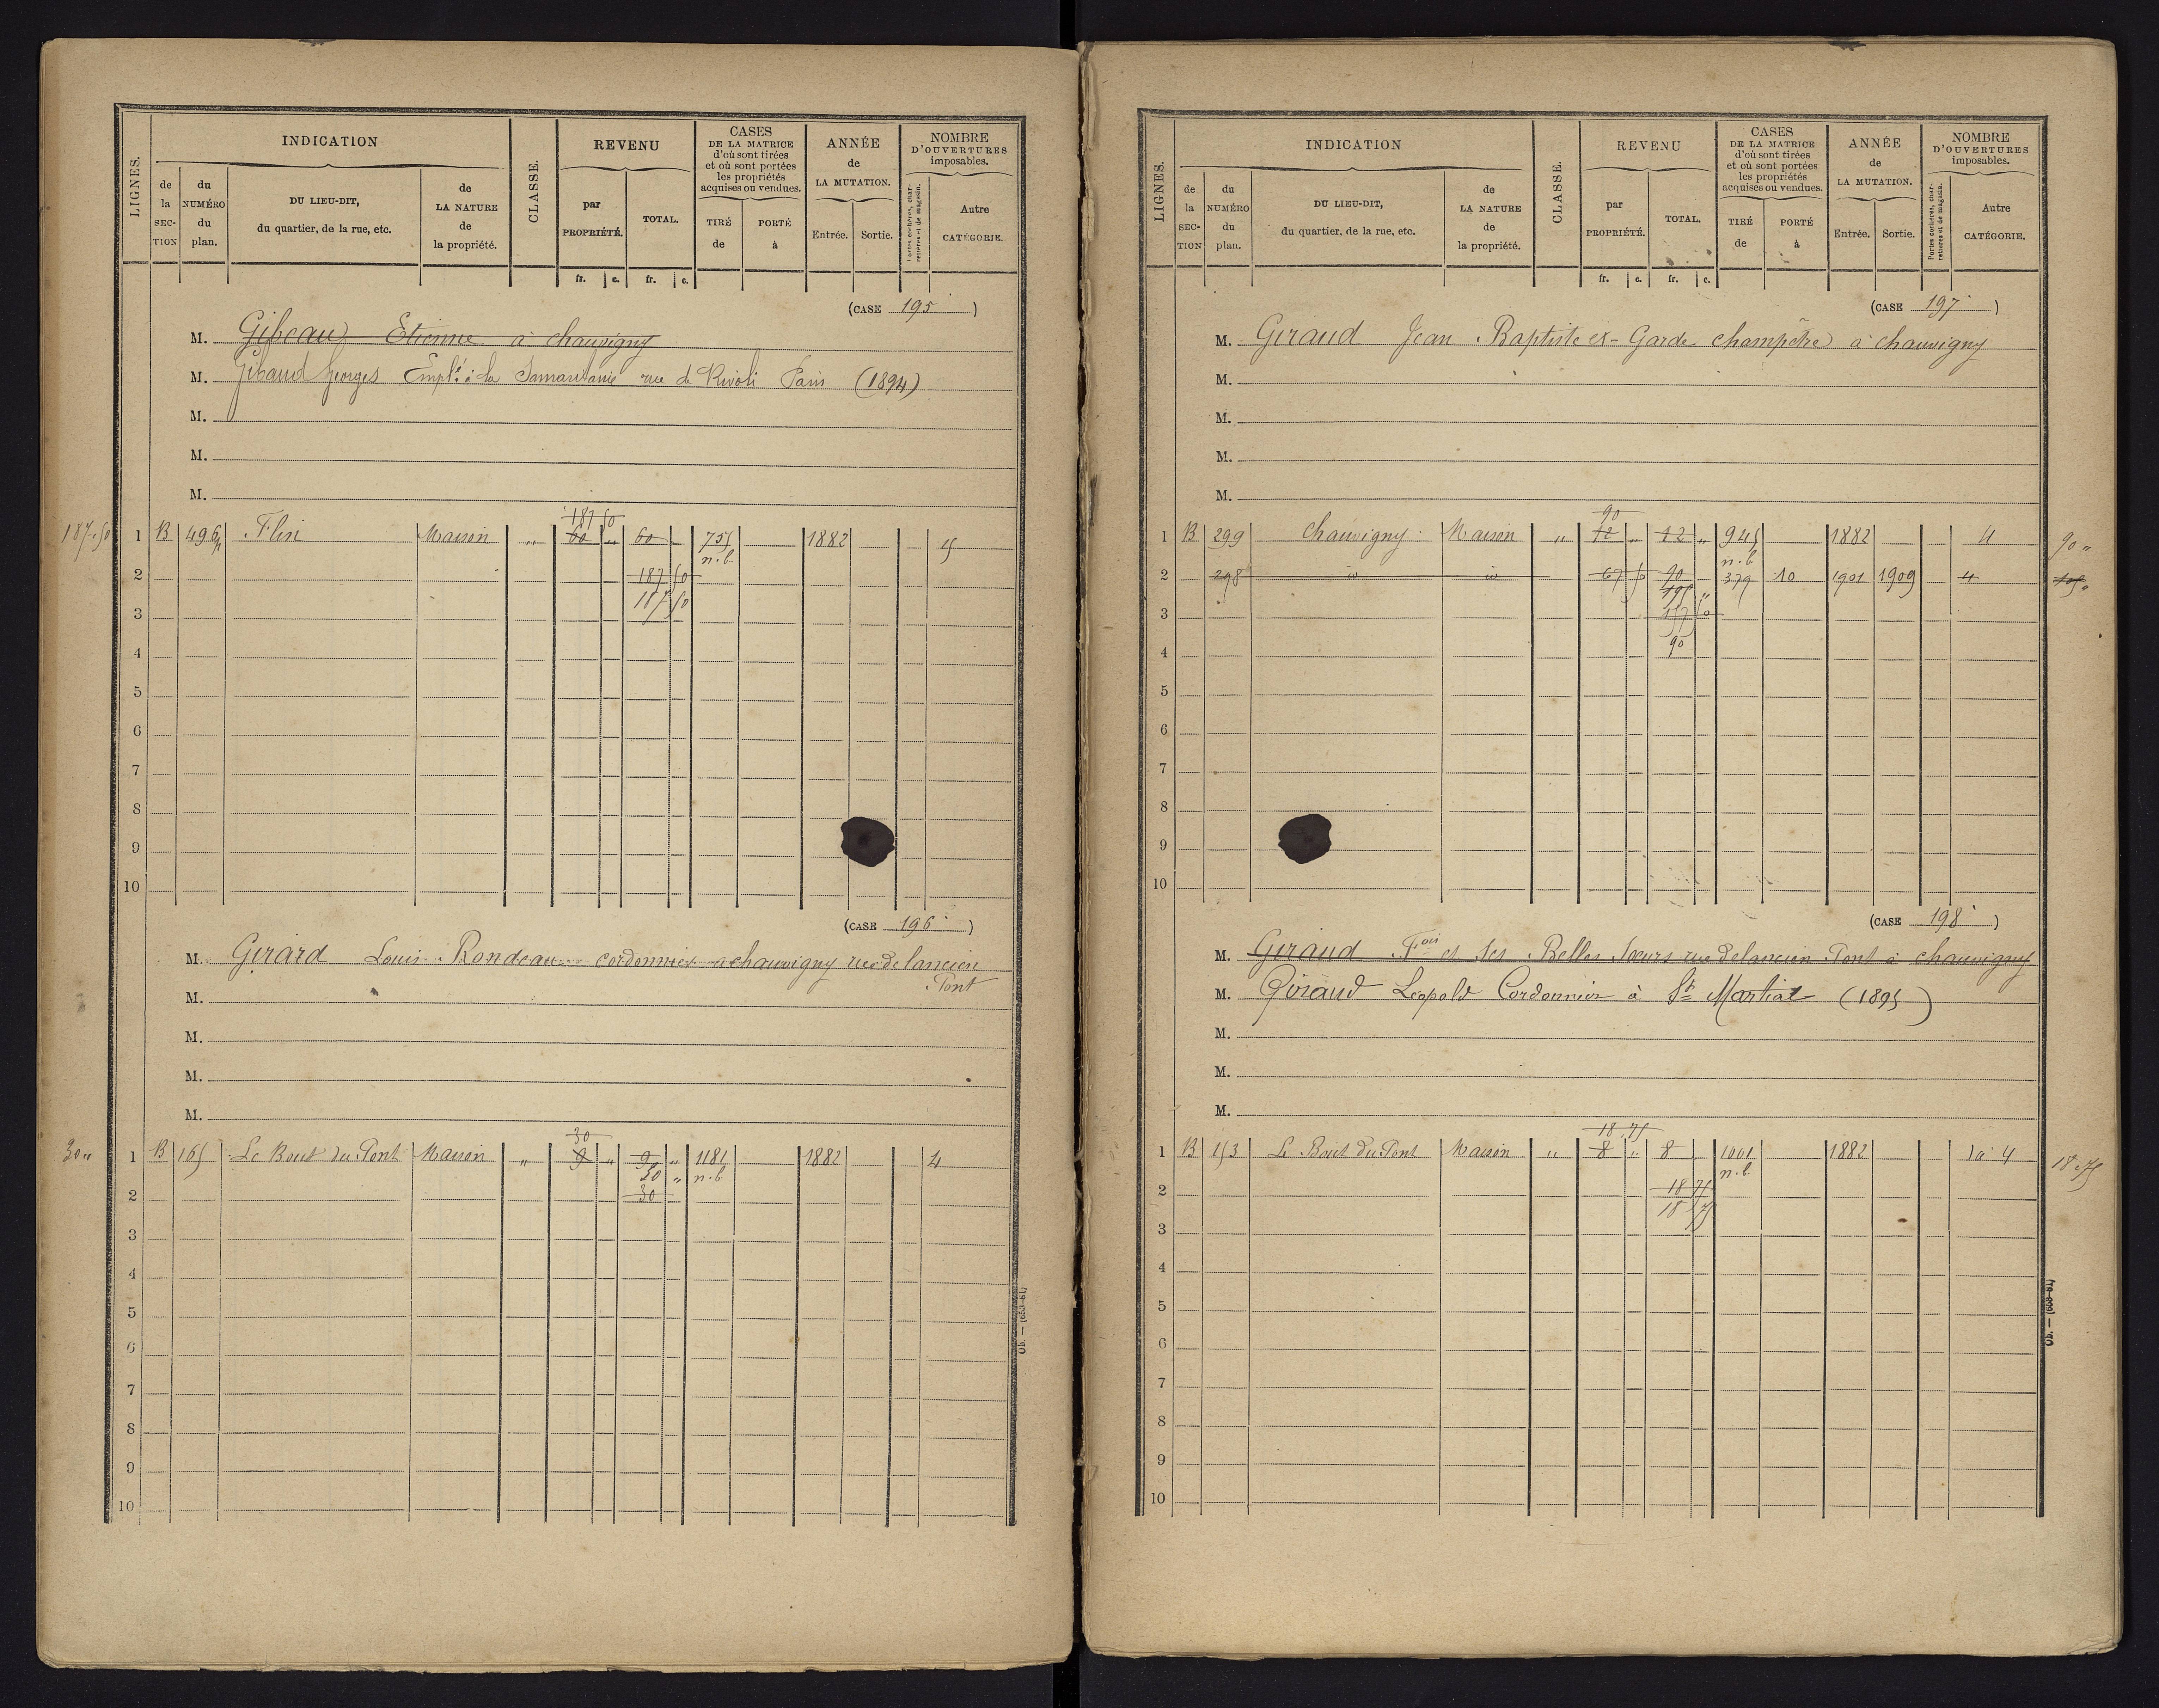 LIGNES.
INDICATION
de la SECTION
du NUMÉRO du plan.
DU LIEU-DIT, du quartier, de la rue, etc.
de LA NATURE de la propriété.
CLASSE.
REVENU
par PROPRIÉTÉ.
TOTAL.
fr. c. fr. c.
CASES DE LA MATRICE d'où sont tirées et où sont portées les propriétés acquises ou vendues.
TIRÉ de
PORTÉ à
ANNÉE de LA MUTATION.
Entrée. Sortie.
NOMBRE D'OUVERTURES imposables.
Portes cochères, charretières et de magasin.
Autre CATÉGORIE.
(CASE 195)
M. Gibeau Etienne à chauvigny
M. Gibaud Georges Empl. à la Samaritaine rue de Rivoli Paris (1894)
M.
M.
M.
187 50
187.50 1 B 496 Flin Maison " 60 " 60 755 1882 5
n.b.
2 187 50
3 187 50
4
5
6
7
8
9
10
(CASE 196)
M. Girard Louis Rondeau cordonnier a chauvigny rue de lancien
Pont
M.
M.
M.
M.
30
30 " 1 B 165 Le Bout du Pont Maison " 9 " 9 " 1181 1882 4
30 " n.b.
2 30
3
4
5
6
7
8
9
10
Ob. — (653-81)
LIGNES.
INDICATION
de la SECTION
du NUMÉRO du plan.
DU LIEU-DIT, du quartier, de la rue, etc.
de LA NATURE de la propriété.
CLASSE.
REVENU
par PROPRIÉTÉ.
TOTAL.
fr. c. fr. c.
CASES DE LA MATRICE d'où sont tirées et où sont portées les propriétés acquises ou vendues.
TIRÉ de
PORTÉ à
ANNÉE de LA MUTATION.
Entrée. Sortie.
NOMBRE D'OUVERTURES imposables.
Portes cochères, charretières et de magasin.
Autre CATÉGORIE.
(CASE 197)
M. Giraud Jean Baptiste ex-Garde champêtre à chauvigny
M.
M.
M.
M.
90
1 B 299 Chauvigny Maison " 12 " 12 " 945 1882 4 90 "
n.b.
2 298 id id 67 50 90 379 10 1901 1909 4
195 "
3 157 50
90
4
5
6
7
8
9
10
(CASE 198)
M. Giraud Fois et ses Belles Soeurs rue delancien Pont à chauvigny
M. Giraud Léopold Cordonnier à St Martial (1895)
M.
M.
M.
18.75
1 B 153 Le Bout du Pont Maison " 8 " 8 1001 1882 1a 4 18.75
n.b.
2 18 75
18 75
3
4
5
6
7
8
9
10
Ob. — (653-81)